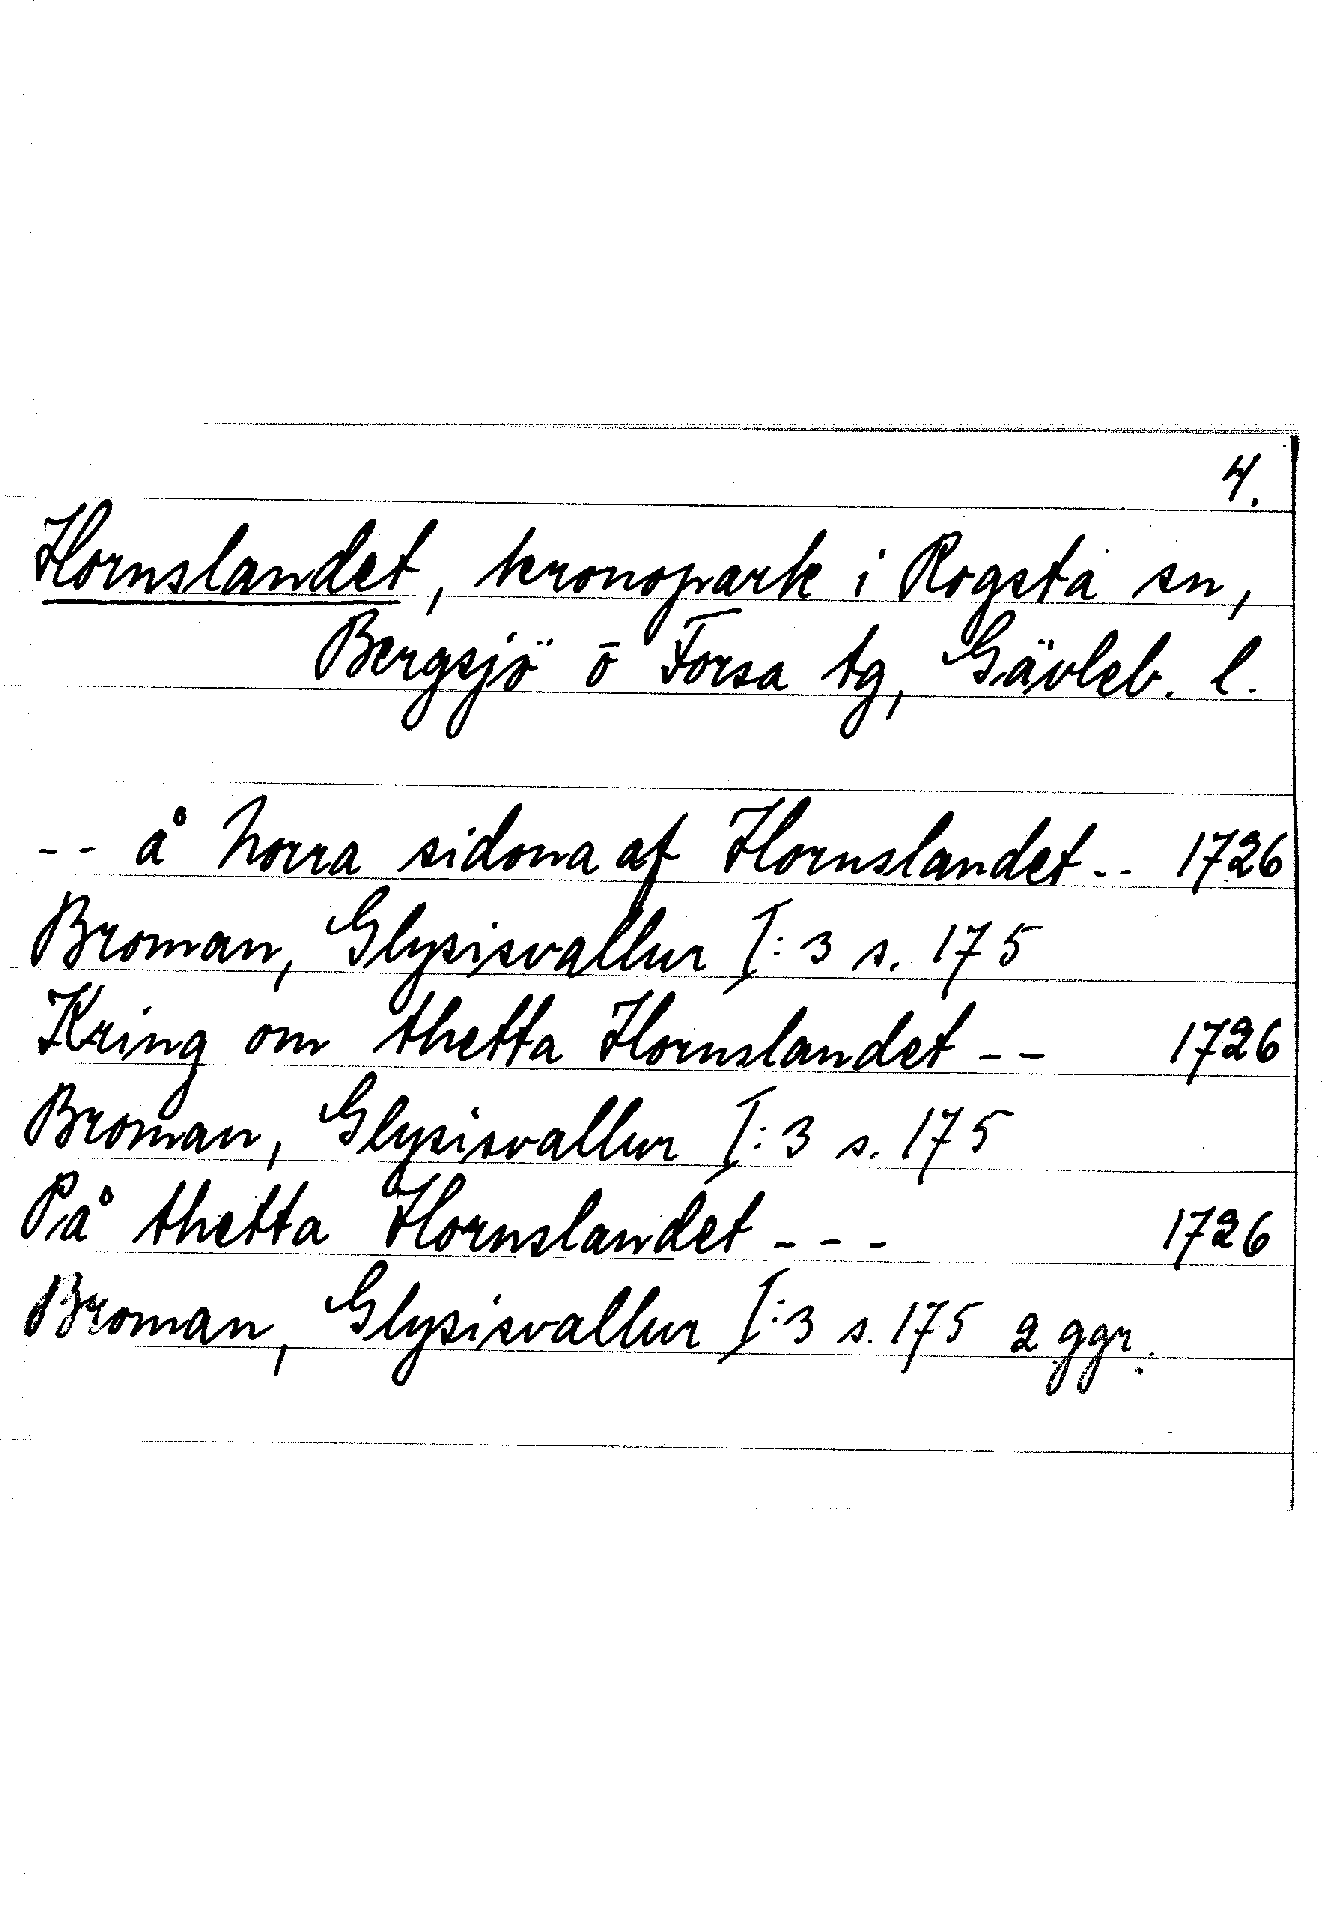 4.
Hornslandet, kronopark i Rogsta sn,
Bergsjö o Forsa tg, Gävleb. l.
-- å Norra sidona af Hornslandet -- 1726
Broman, Glysisvallur I:3 s. 175
Kring om thetta Hornslandet -- 1726
Broman, Glysisvallur I:3 s. 175
På thetta Hornslandet --- 1726
Broman, Glysisvallur I:3 s. 175 2 ggr.